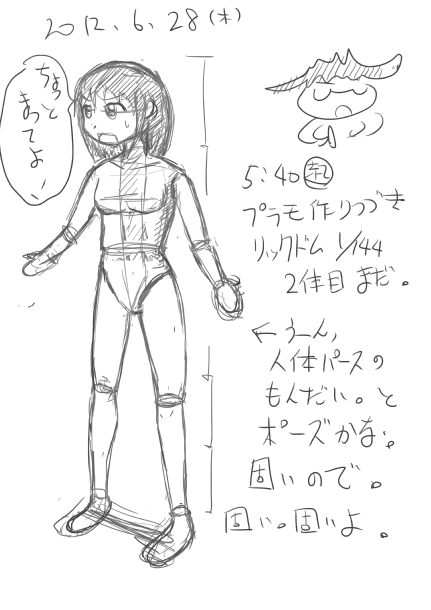 2012.6.28(木)
ちょっと
まってよ
5:40起
プラモ作りつづき
リックドム 1/144
2体目 まだ。
←うーん、
人体パースの
もんだい。と
ポーズかな。
固いので。
固い。固いよ。